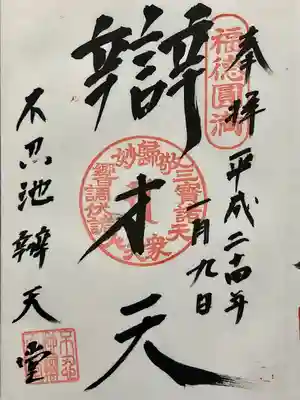 奉拝
平成二十四年
一月九日
福徳圓満
辯才天
不忍池辯天堂